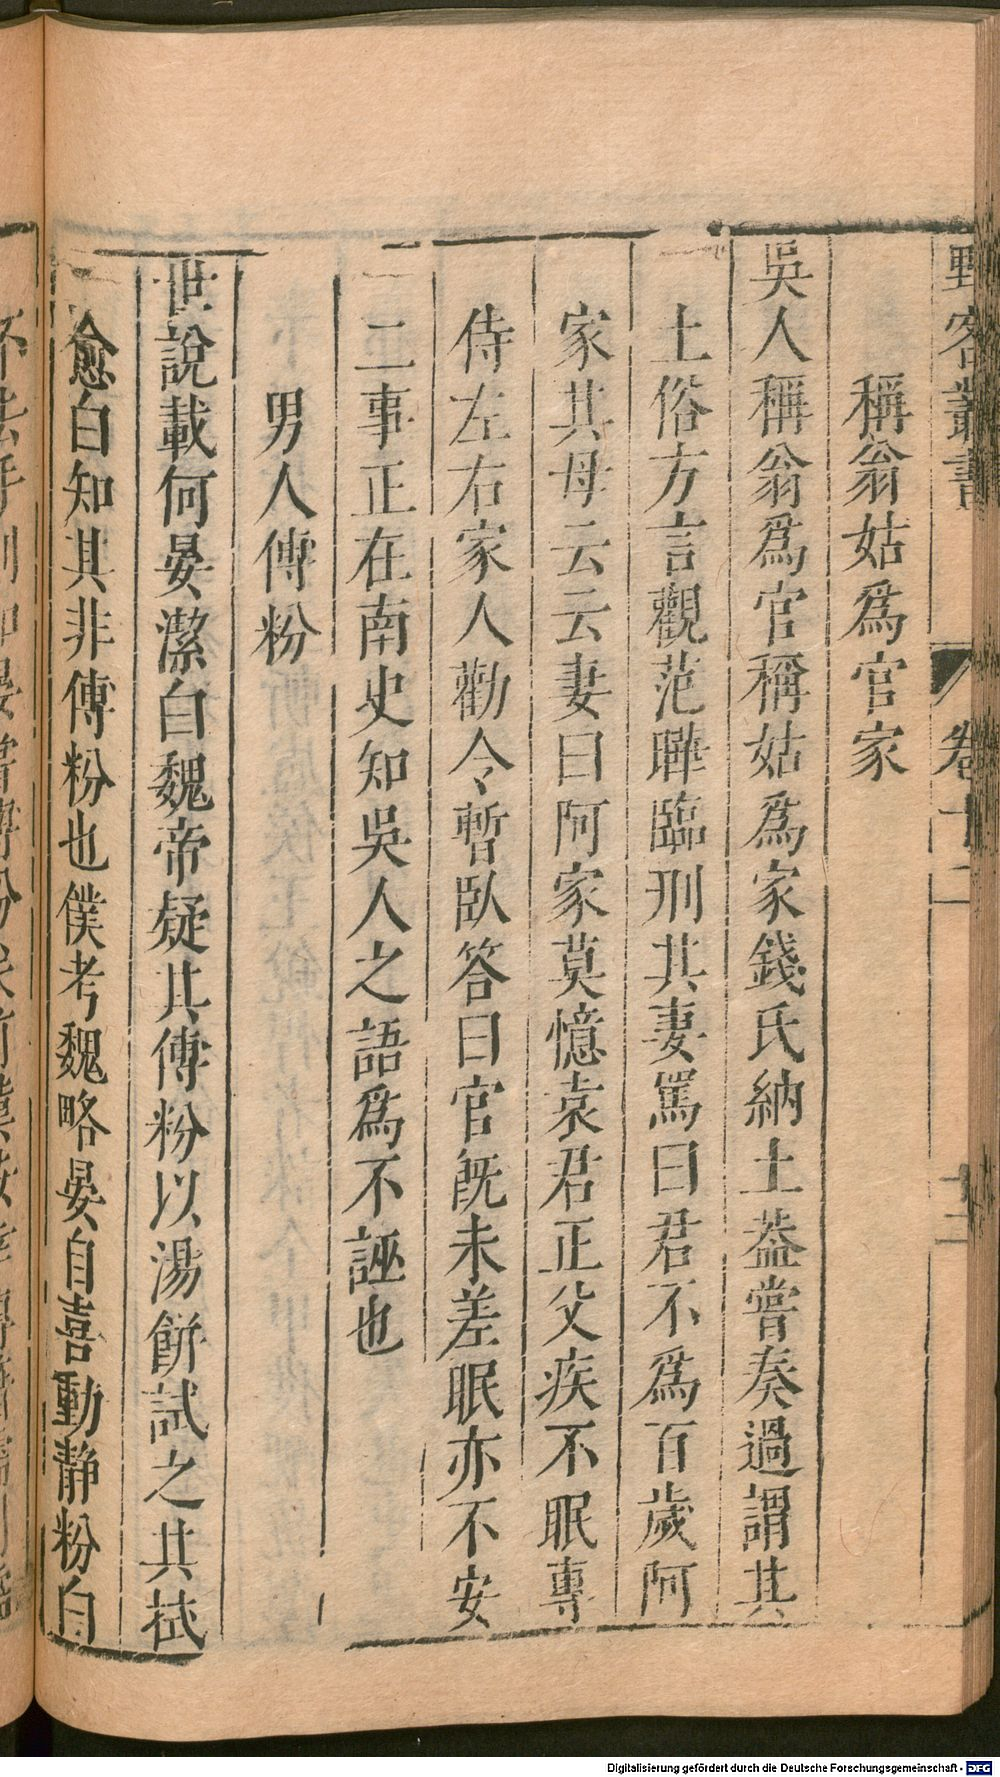 野客叢書 卷十二 十三
稱翁姑爲官家
吳人稱翁爲官稱姑爲家錢氏納土葢嘗奏過謂其
土俗方言觀范曄臨刑其妻罵曰君不爲百歲阿
家其母云云妻曰阿家莫憶袁君正父疾不眠專
侍左右家人勸令暫臥答曰官旣未差眠亦不安
二事正在南史知吳人之語爲不誣也
男人傅粉
世說載何晏潔白魏帝疑其傅粉以湯餅試之其拭
愈白知其非傅粉也僕考魏略晏自喜動靜粉白
Digitalisierung gefördert durch die Deutsche Forschungsgemeinschaft - DFG